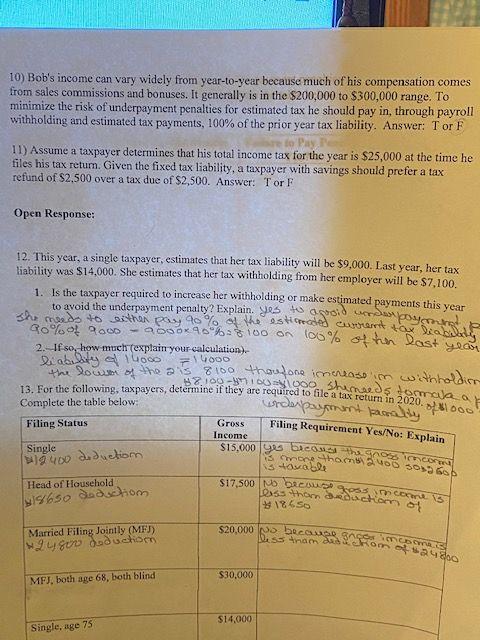 10) Bob's income can vary widely from year-to-year because much of his compensation comes
from sales commissions and bonuses. It generally is in the $200,000 to $300,000 range. To
minimize the risk of underpayment penalties for estimated tax he should pay in, through payroll
withholding and estimated tax payments, 100% of the prior year tax liability. Answer: T or F
11) Assume a taxpayer determines that his total income tax for the year is $25,000 at the time he
files his tax return. Given the fixed tax liability, a taxpayer with savings should prefer a tax
refund of $2,500 over a tax due of $2,500. Answer: T or F
Open Response:
12. This year, a single taxpayer, estimates that her tax liability will be $9,000. Last year, her tax
liability was $14,000. She estimates that her tax withholding from her employer will be $7,100.
1. Is the taxpayer required to increase her withholding or make estimated payments this year
to avoid the underpayment penalty? Explain. yes to avoid underpayment
she needs to either pay 90% of the estimated current tax liability
90% of 9000 - 9000x90%=8100 or 100% of her last year
2. If so, how much (explain your calculation).
liability of 14000 = 14000
the lower of the 2 is 8100 therefore increase in withholding
$8100-$7100=$1000, she needs to make a p
of $1000
13. For the following, taxpayers, determine if they are required to file a tax return in 2020.
underpayment penalty
Complete the table below:
Filing Status
Gross Income
Filing Requirement Yes/No: Explain
Single
$12400 deduction
$15,000
yes because the gross income
is more than $12400 so $2600
is taxable
Head of Household
$18650 deduction
$17,500
No because gross income is
less than deduction of
$18650
Married Filing Jointly (MFJ)
$24800 deduction
$20,000
No because gross income is
less than deduction of $24800
MFJ, both age 68, both blind
$30,000
Single, age 75
$14,000